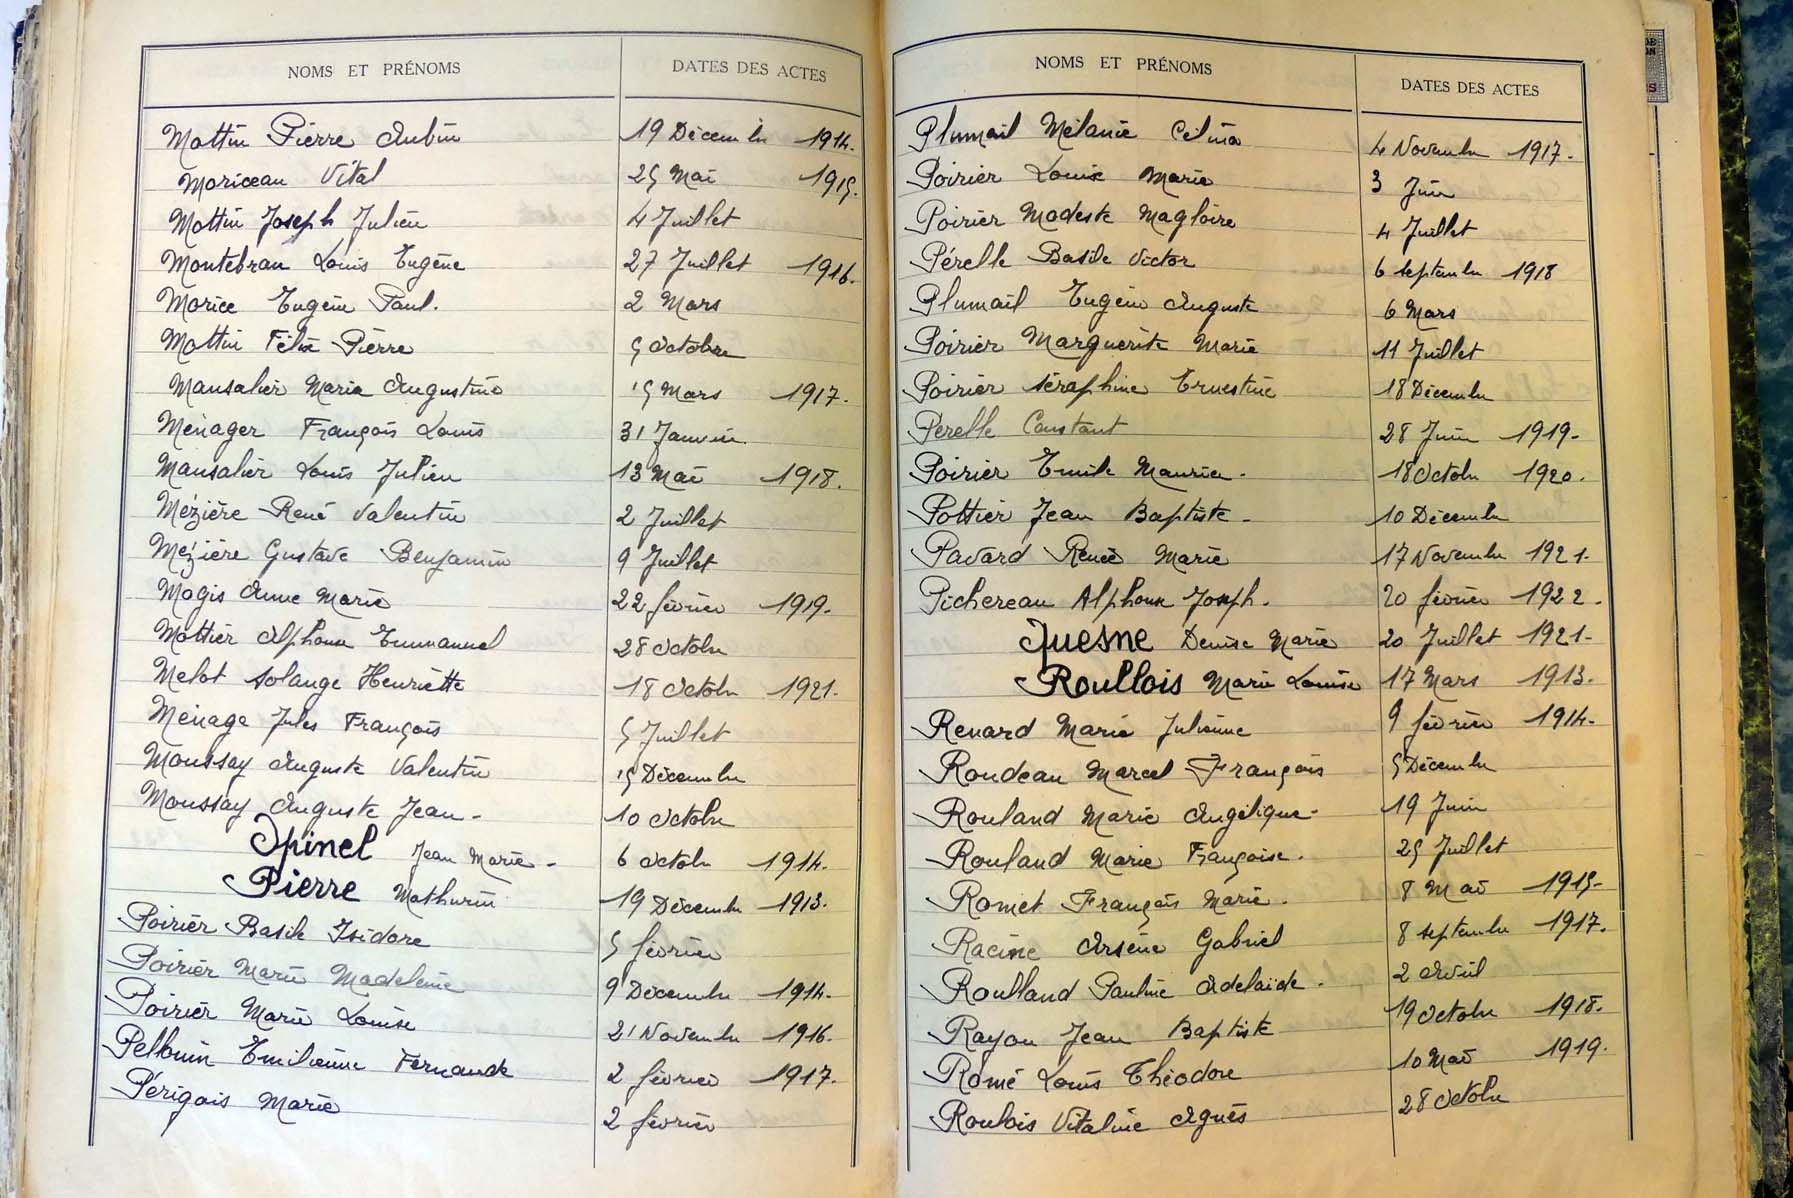 NOMS ET PRÉNOMS DATES DES ACTES
Mottin Pierre Aubin 19 Décembre 1914.
Moriceau Vital 25 Mai 1915.
Mottin Joseph Julien 4 Juillet
Montebran Louis Eugène 27 Juillet 1916.
Morice Eugène Paul. 2 Mars
Mottin Félix Pierre 5 Octobre
Mansalier Maria Augustine 15 Mars 1917.
Ménager François Louis 31 Janvier
Mansalier Louis Julien 13 Mai 1918.
Mézière René Valentin 2 Juillet
Mézière Gustave Benjamin 9 Juillet
Magis Anne Marie 22 février 1919.
Mottier Alphonse Emmanuel 28 Octobre
Melot Solange Henriette 18 Octobre 1921.
Ménage Jules François 5 Juillet
Moussay Auguste Valentin 15 Décembre
Moussay Auguste Jean - 10 Octobre
Opinel Jean Marie - 6 Octobre 1914.
Pierre Mathurin 19 Décembre 1913.
Poirier Basile Isidore 5 février
Poirier Marie Madeleine 9 Décembre 1914.
Poirier Marie Louise 21 Novembre 1916.
Pellouin Emilienne Fernande 2 février 1917.
Périgois Marie 2 février
NOMS ET PRÉNOMS DATES DES ACTES
Plumail Mélanie Celina 4 Novembre 1917.
Poirier Louise Marie 3 Juin
Poirier Modeste Magloire 4 Juillet
Pérelle Basile Victor 6 Septembre 1918
Plumail Eugène Auguste 6 Mars
Poirier Marguerite Marie 11 Juillet
Poirier Séraphine Ernestine 18 Décembre
Perelle Constant 28 Juin 1919.
Poirier Emile Maurice. 18 Octobre 1920.
Pottier Jean Baptiste. 10 Décembre
Pavard Renée Marie 17 Novembre 1921.
Pichereau Alphonse Joseph. 20 février 1922.
Quesne Denise Marie 20 Juillet 1921.
Roullois Marie Louise 17 Mars 1913.
Renard Marie Julienne 9 février 1914.
Rondeau Marcel François 5 Décembre
Rouland Marie Angélique. 19 Juin
Rouland Marie Françoise. 25 Juillet
Romet François Marie. 8 Mai 1915.
Racine Arsène Gabriel 8 Septembre 1917.
Roulland Pauline Adelaïde. 2 Avril
Rayon Jean Baptiste 19 Octobre 1918.
Romé Louis Théodore 10 Mai 1919.
Roulois Vitaline Agnès 28 Octobre